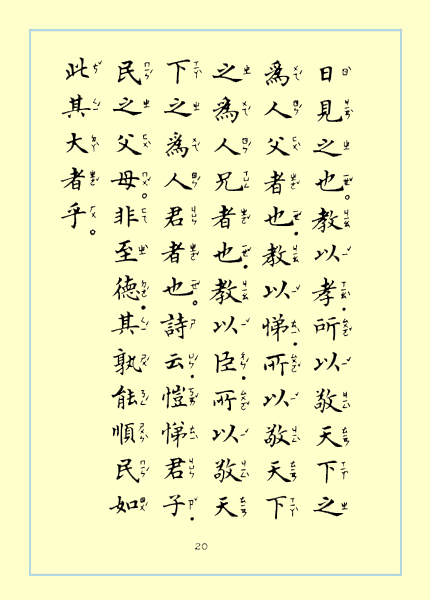 日見之也。教以孝．所以敬天下之
爲人父者也．教以悌．所以敬天下
之爲人兄者也．教以臣．所以敬天
下之爲人君者也。詩云．愷悌君子．
民之父母。非至德．其孰能順民如
此其大者乎。
20